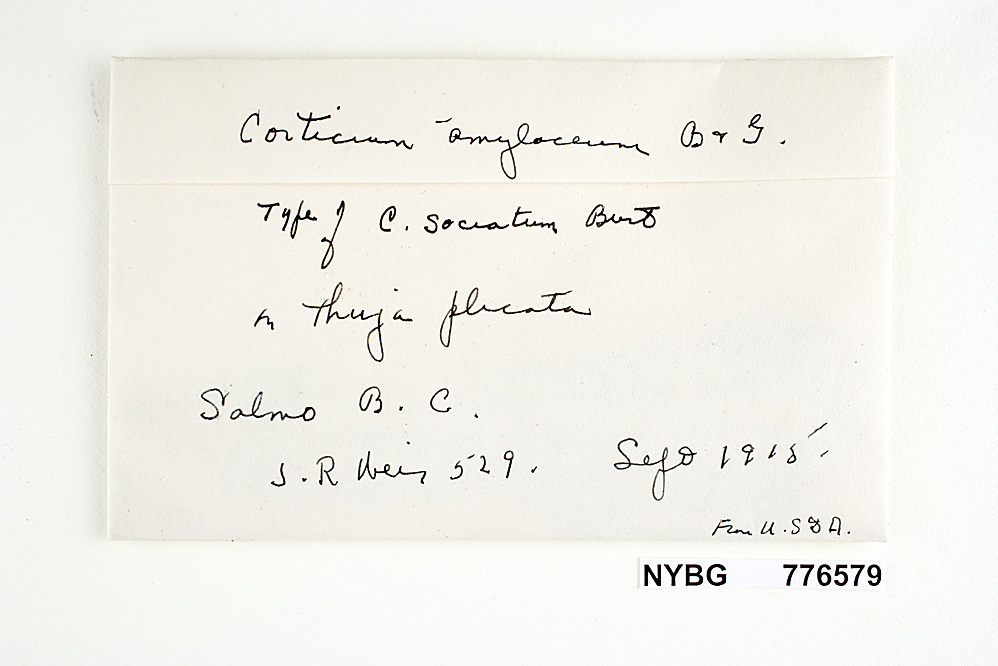 Corticium amylaceum B & G.
Type of C. sociatum Burt
on Thuja plicata
Salmo B. C.
J. R. Weir 529. Sept 1915.
From U. S D A.
NYBG 776579